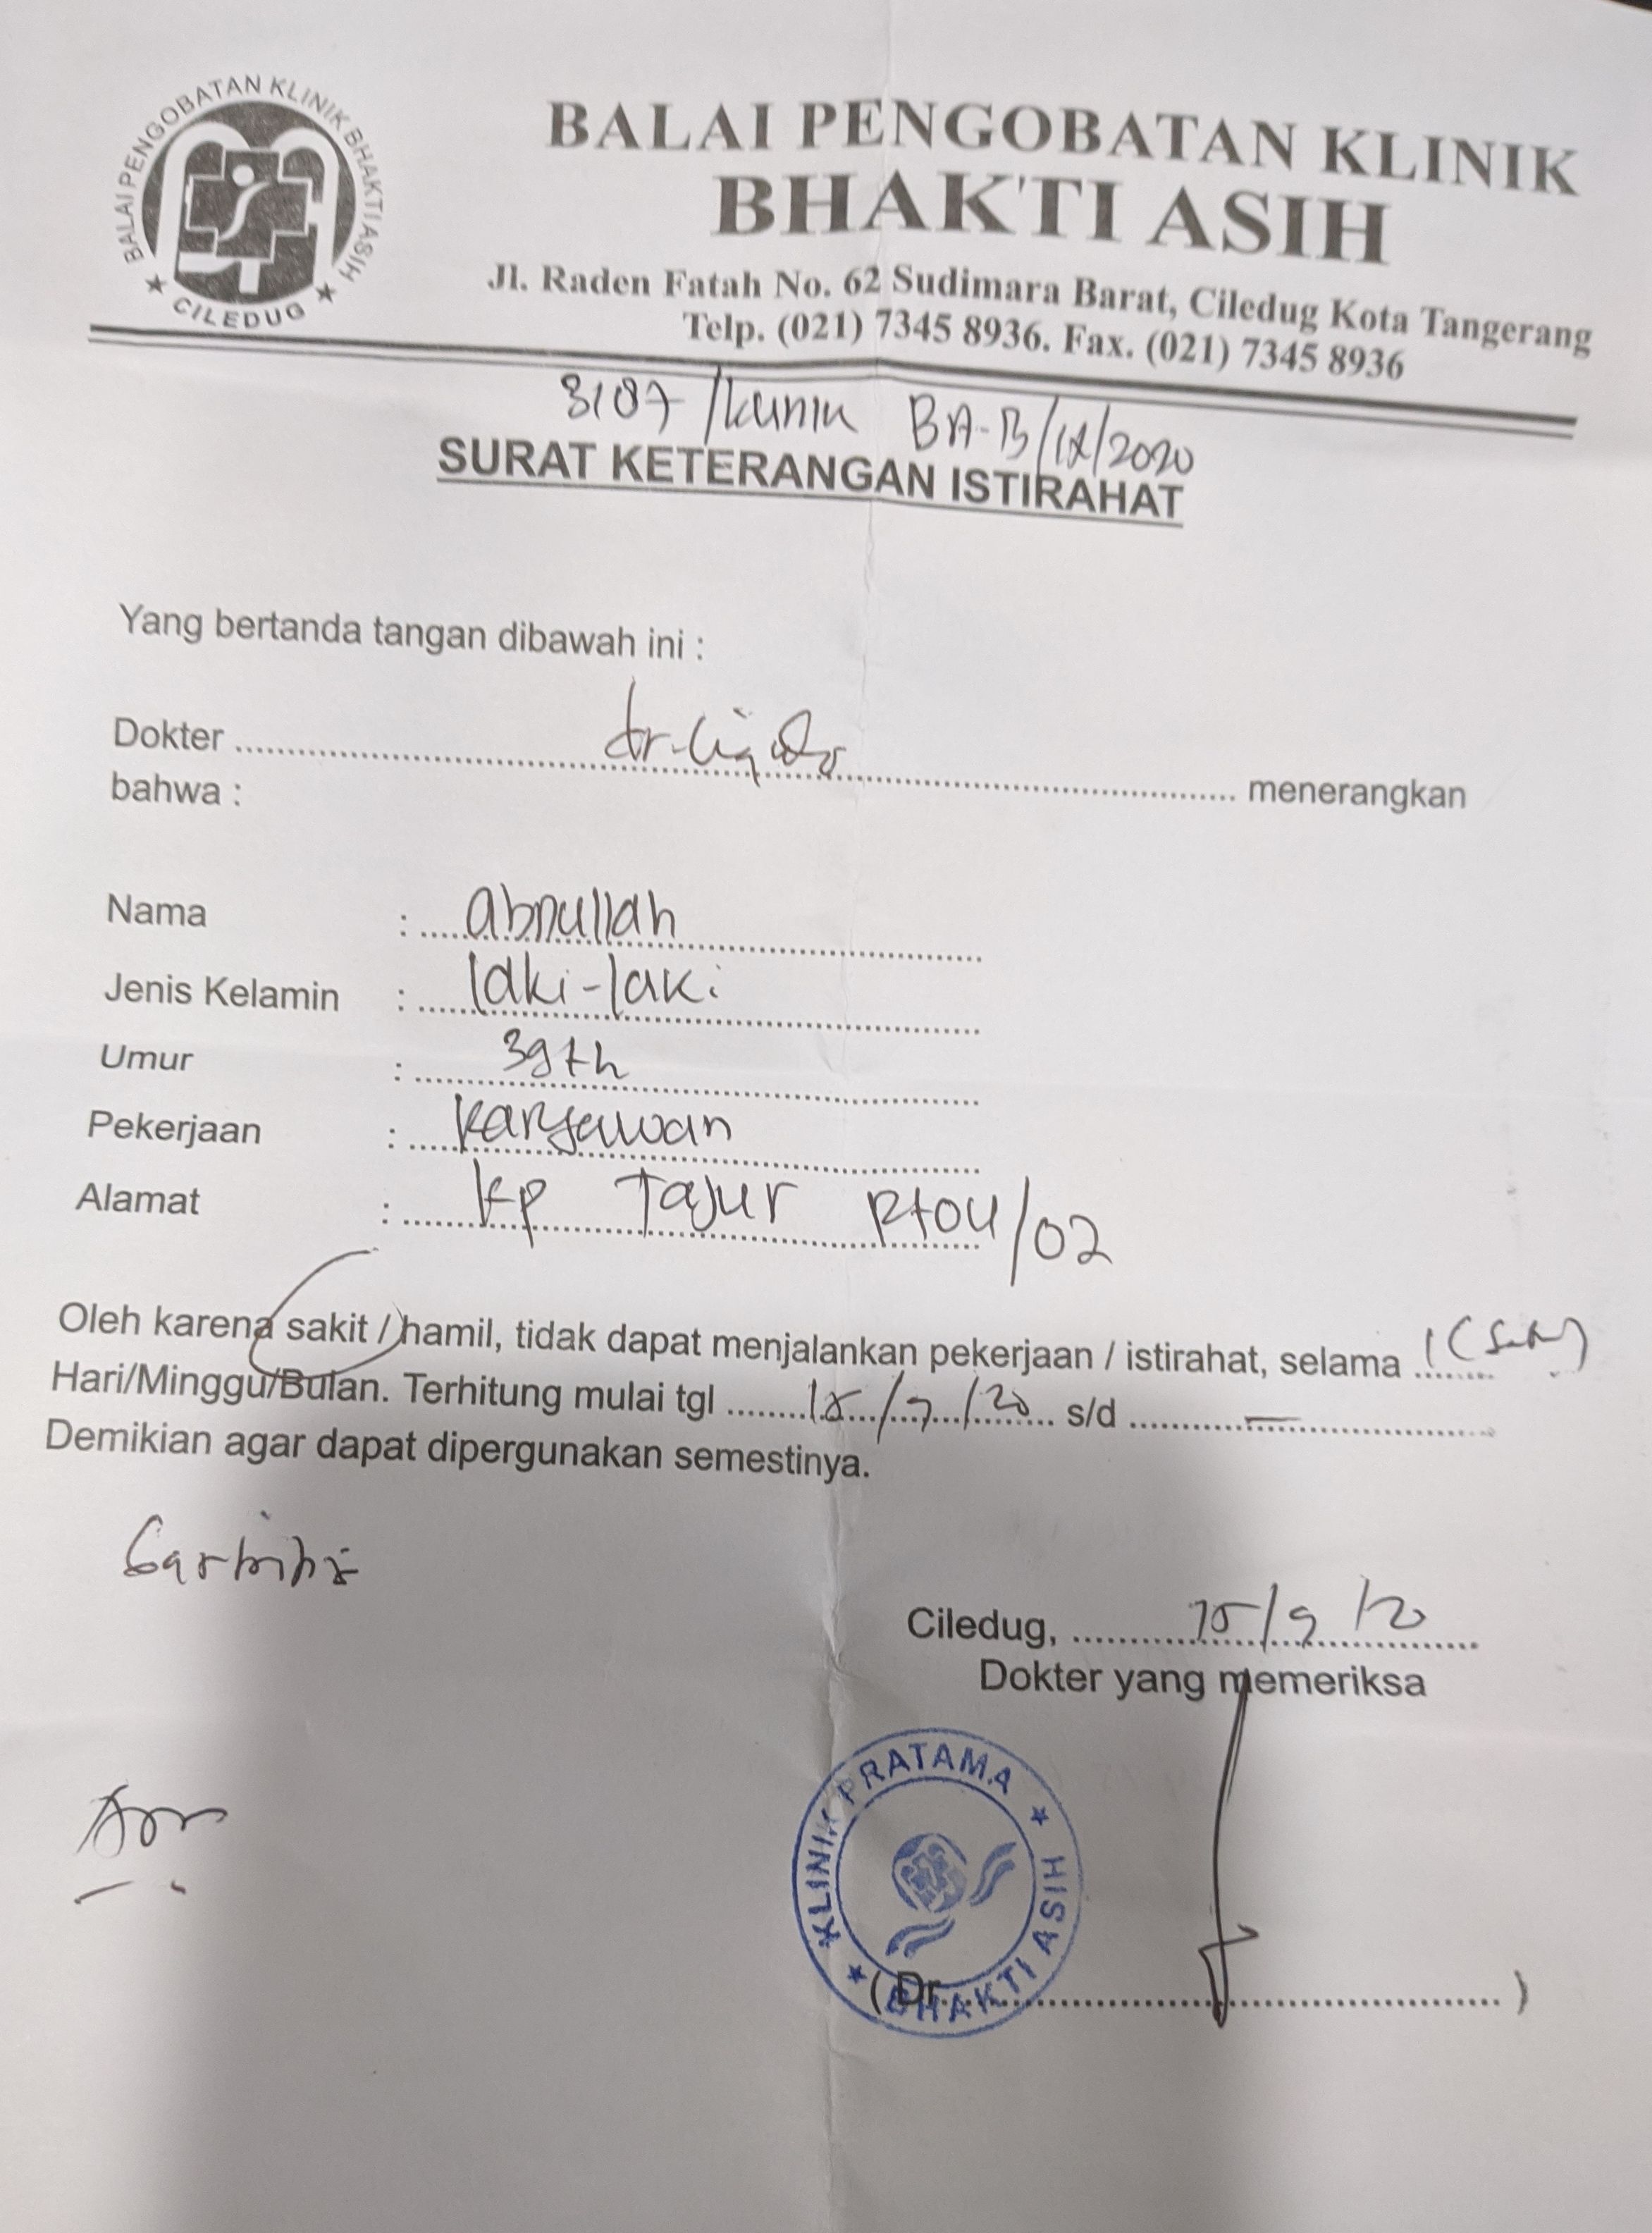 BALAI PENGOBATAN KLINIK BHAKTI ASIH
★ CILEDUG ★
BALAI PENGOBATAN KLINIK
BHAKTI ASIH
Jl. Raden Fatah No. 62 Sudimara Barat, Ciledug Kota Tangerang
Telp. (021) 7345 8936. Fax. (021) 7345 8936
3187/Klinik BA-B/IX/2020
SURAT KETERANGAN ISTIRAHAT
Yang bertanda tangan dibawah ini :
Dokter dr. menerangkan
bahwa :
Nama : Abdullah
Jenis Kelamin : laki-laki
Umur : 39 th
Pekerjaan : karyawan
Alamat : kp Tajur Rt 04/02
Oleh karena sakit / hamil, tidak dapat menjalankan pekerjaan / istirahat, selama 1 (satu)
Hari/Minggu/Bulan. Terhitung mulai tgl 15/9/20 s/d —
Demikian agar dapat dipergunakan semestinya.
Ciledug, 15/9/20
Dokter yang memeriksa
KLINIK PRATAMA ★ BHAKTI ASIH ★
( Dr. )